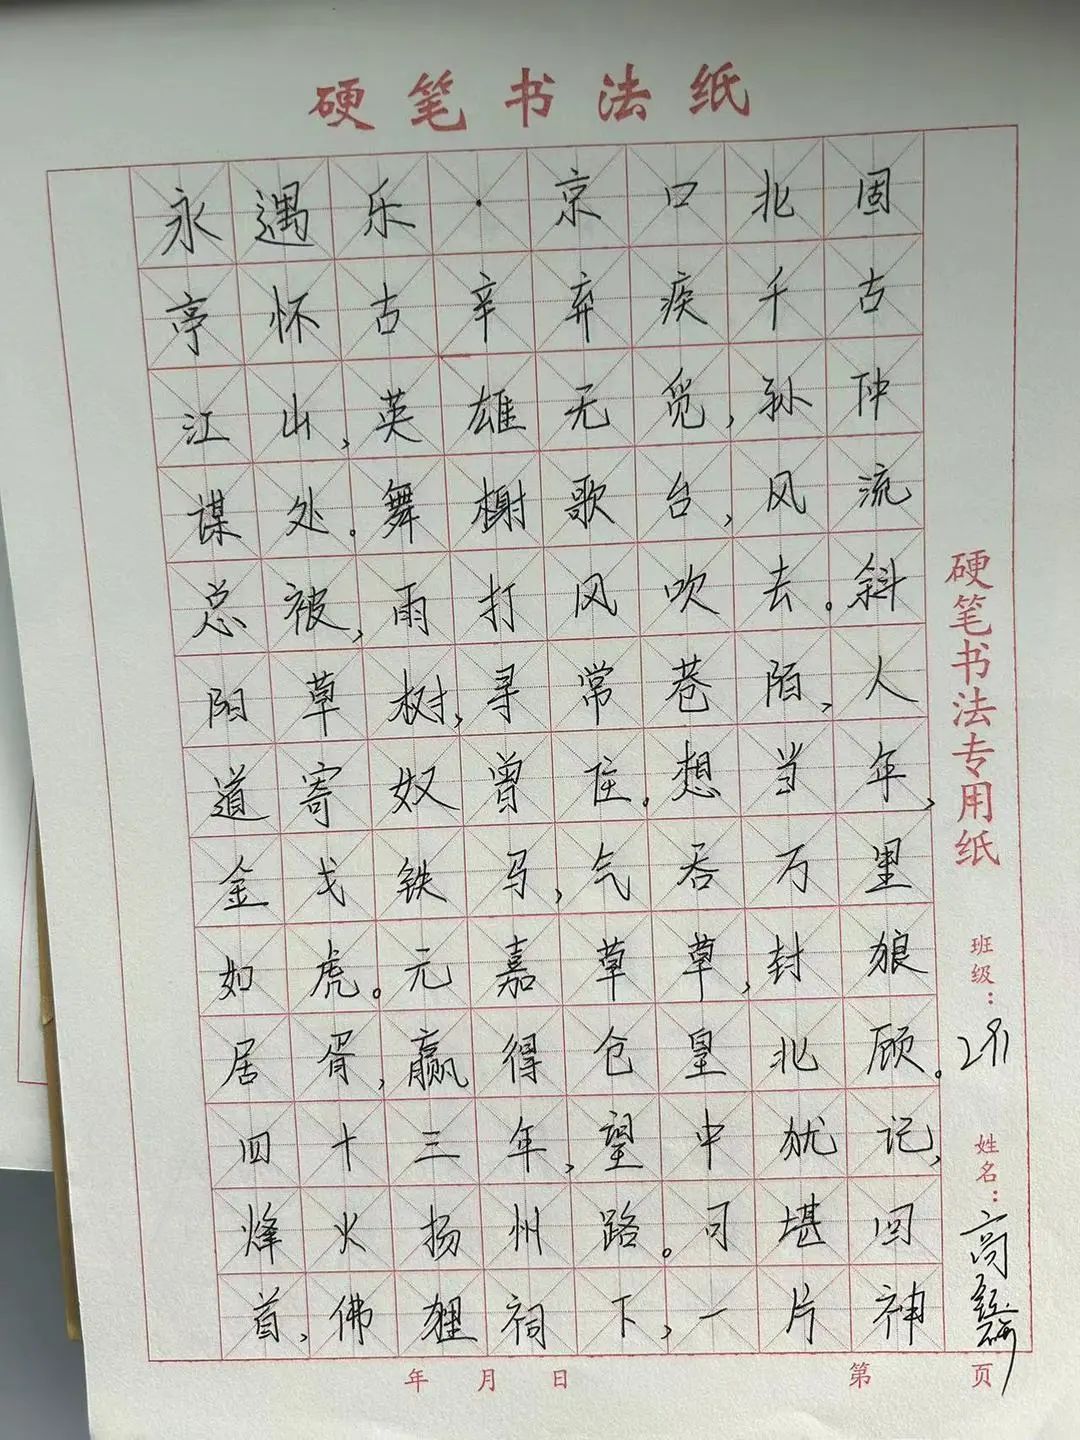 硬笔书法纸
永遇乐·京口北固
亭怀古辛弃疾千古
江山,英雄无觅,孙仲
谋处。舞榭歌台,风流
总被,雨打风吹去。斜
阳草树,寻常巷陌,人
道寄奴曾住。想当年,
金戈铁马,气吞万里
如虎。元嘉草草,封狼
居胥,赢得仓皇北顾。
四十三年,望中犹记,
烽火扬州路。可堪回
首,佛狸祠下,一片神
年 月 日 第 页
硬笔书法专用纸
班级:
姓名:高